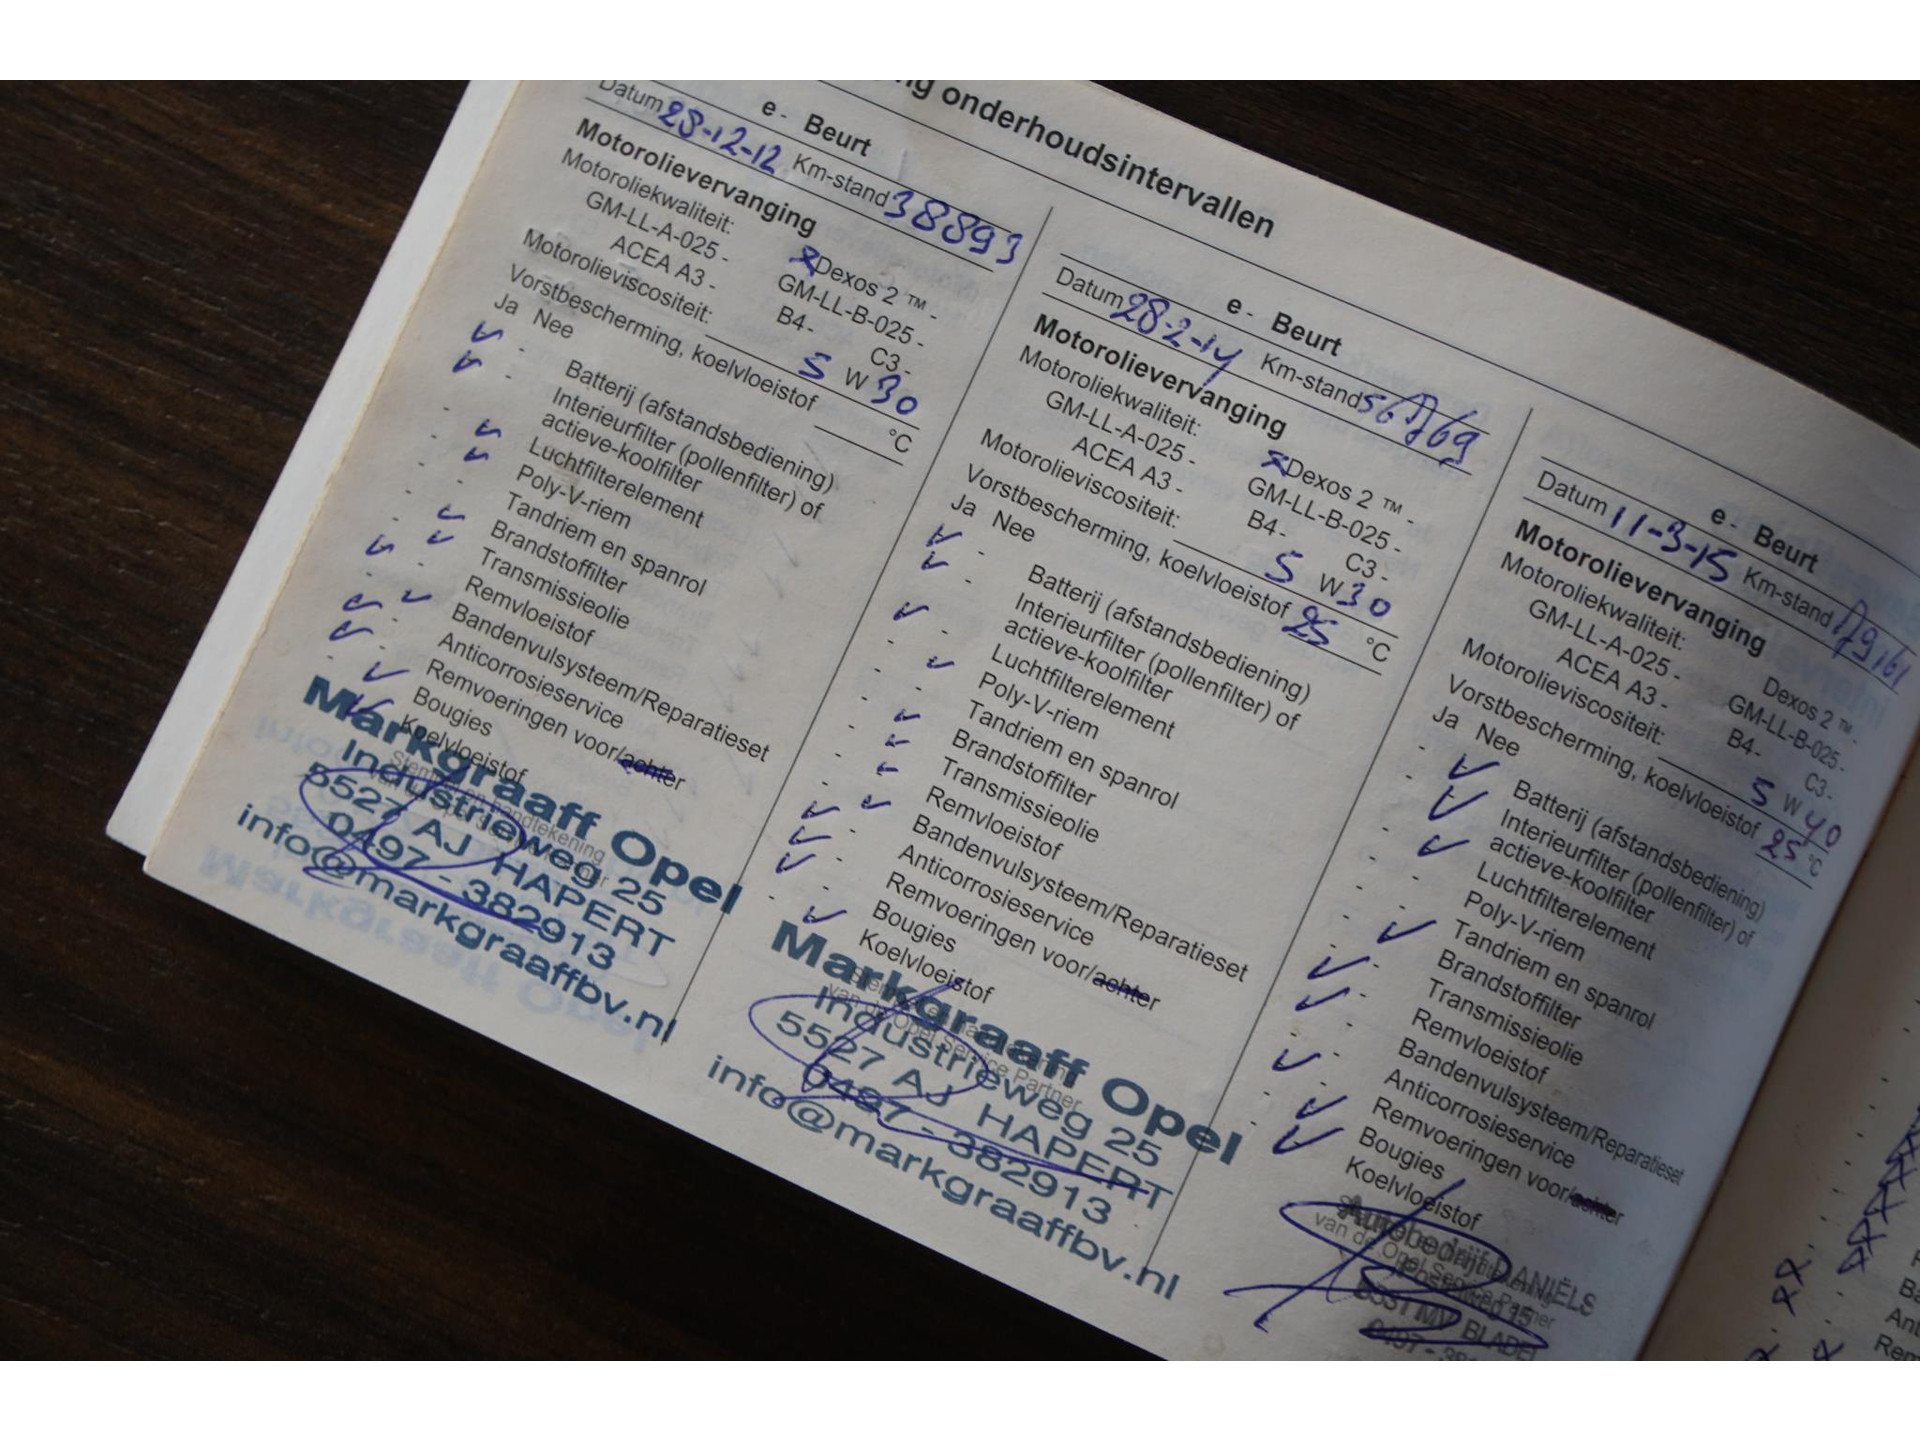 onderhoudsintervallen
e - Beurt
Datum 28-12-12 Km-stand 38893
Motorolievervanging
Motoroliekwaliteit: x Dexos 2 ™ -
GM-LL-A-025 - GM-LL-B-025 -
ACEA A3 - B4 - C3 -
Motorolieviscositeit: 5 W 30
Vorstbescherming, koelvloeistof °C
Ja Nee
Batterij (afstandsbediening)
Interieurfilter (pollenfilter) of
actieve-koolfilter
Luchtfilterelement
Poly-V-riem
Tandriem en spanrol
Brandstoffilter
Transmissieolie
Remvloeistof
Bandenvulsysteem/Reparatieset
Anticorrosieservice
Remvoeringen voor/achter
Bougies
Koelvloeistof
Markgraaff Opel
Industrieweg 25
5527 AJ HAPERT
0497 - 382913
info@markgraaffbv.nl
e - Beurt
Datum 28-2-14 Km-stand
Motorolievervanging
Motoroliekwaliteit: x Dexos 2 ™ -
GM-LL-A-025 - GM-LL-B-025 -
ACEA A3 - B4 - C3 -
Motorolieviscositeit: 5 W 30
Vorstbescherming, koelvloeistof 25 °C
Ja Nee
Batterij (afstandsbediening)
Interieurfilter (pollenfilter) of
actieve-koolfilter
Luchtfilterelement
Poly-V-riem
Tandriem en spanrol
Brandstoffilter
Transmissieolie
Remvloeistof
Bandenvulsysteem/Reparatieset
Anticorrosieservice
Remvoeringen voor/achter
Bougies
Koelvloeistof
van de Opel Service Partner
Markgraaff Opel
Industrieweg 25
5527 AJ HAPERT
0497 - 382913
info@markgraaffbv.nl
e - Beurt
Datum 11-3-15 Km-stand
Motorolievervanging
Motoroliekwaliteit: Dexos 2 ™ -
GM-LL-A-025 - GM-LL-B-025 -
ACEA A3 - B4 - C3 -
Motorolieviscositeit: 5 W 40
Vorstbescherming, koelvloeistof 25 °C
Ja Nee
Batterij (afstandsbediening)
Interieurfilter (pollenfilter) of
actieve-koolfilter
Luchtfilterelement
Poly-V-riem
Tandriem en spanrol
Brandstoffilter
Transmissieolie
Remvloeistof
Bandenvulsysteem/Reparatieset
Anticorrosieservice
Remvoeringen voor/achter
Bougies
Koelvloeistof
Autobedrijf DANIËLS
van de Opel Service Partner
BLADEL